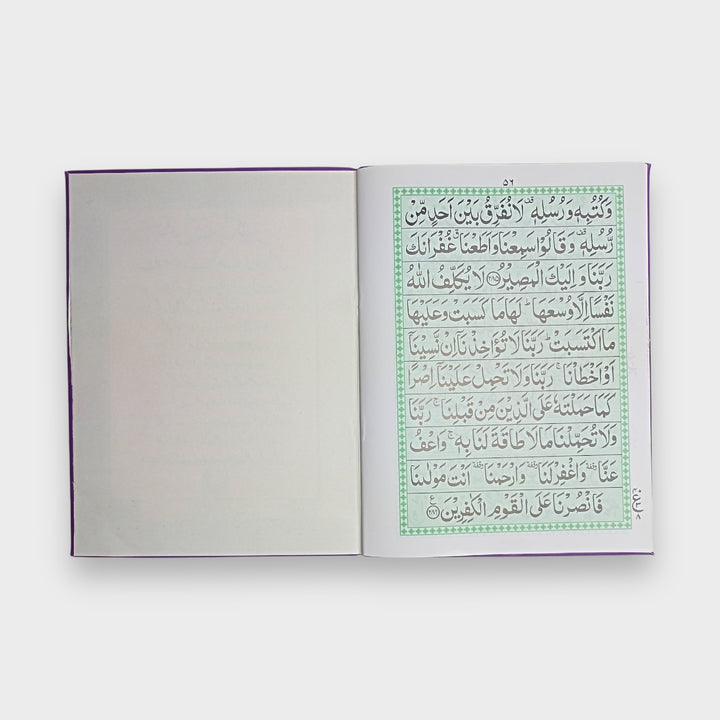 ۵۶
وَكُتُبِهٖ وَرُسُلِهٖ ۟ لَا نُفَرِّقُ بَيْنَ اَحَدٍ مِّنْ
رُّسُلِهٖ ۟ وَقَالُوْا سَمِعْنَا وَاَطَعْنَا ۫ غُفْرَانَكَ
رَبَّنَا وَاِلَيْكَ الْمَصِيْرُ ﴿۲۸۵﴾ لَا يُكَلِّفُ اللّٰهُ
نَفْسًا اِلَّا وُسْعَهَا ؕ لَهَا مَا كَسَبَتْ وَعَلَيْهَا
مَا اكْتَسَبَتْ ؕ رَبَّنَا لَا تُؤَاخِذْنَاۤ اِنْ نَّسِيْنَاۤ
اَوْ اَخْطَاْنَا ۚ رَبَّنَا وَلَا تَحْمِلْ عَلَيْنَاۤ اِصْرًا
كَمَا حَمَلْتَهٗ عَلَى الَّذِيْنَ مِنْ قَبْلِنَا ۚ رَبَّنَا
وَلَا تُحَمِّلْنَا مَا لَا طَاقَةَ لَنَا بِهٖ ۚ وَاعْفُ
عَنَّا وقفة وَاغْفِرْ لَنَا وقفة وَارْحَمْنَا وقفة اَنْتَ مَوْلٰىنَا
فَانْصُرْنَا عَلَى الْقَوْمِ الْكٰفِرِيْنَ ﴿۲۸۶﴾ ع